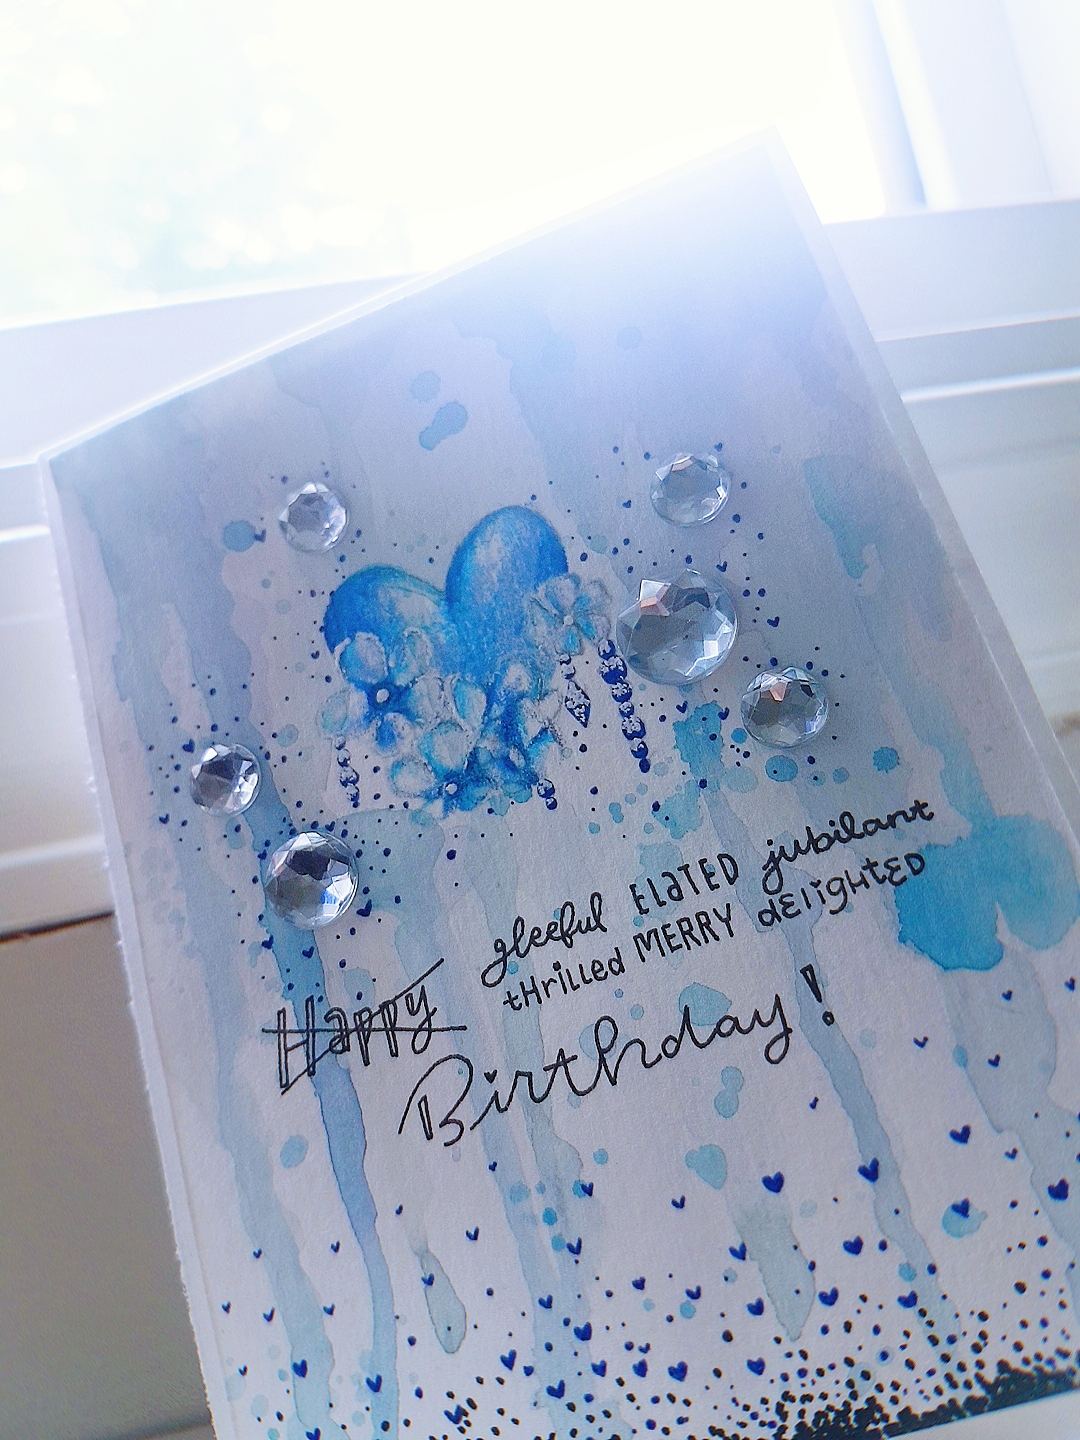 gleeful ELaTED jubilant
tHrilled MERRY dElighTED
Happy
Birthday!